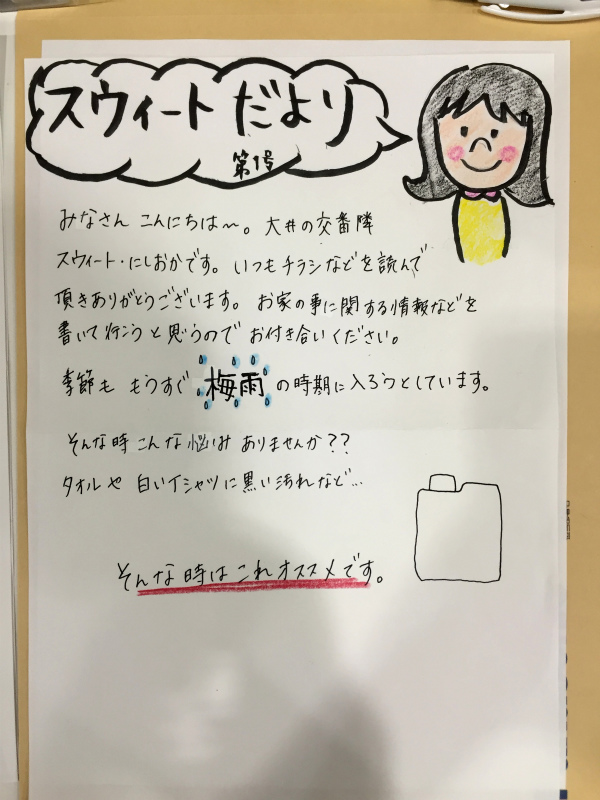 スウィートだより
第1号
みなさん こんにちは〜。大井の交番隣
スウィート・にしおかです。いつもチラシなどを読んで
頂きありがとうございます。お家の事に関する情報などを
書いて行こうと思うのでお付き合いください。
季節も もうすぐ 梅雨 の時期に入ろうとしています。
そんな時こんな悩みありませんか??
タオルや 白いTシャツに黒い汚れなど…
そんな時はこれオススメです。